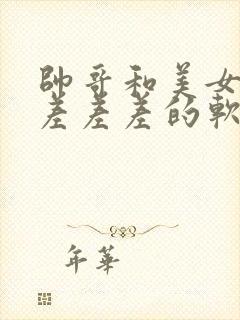 帥哥和美女
差差差的軟
年華